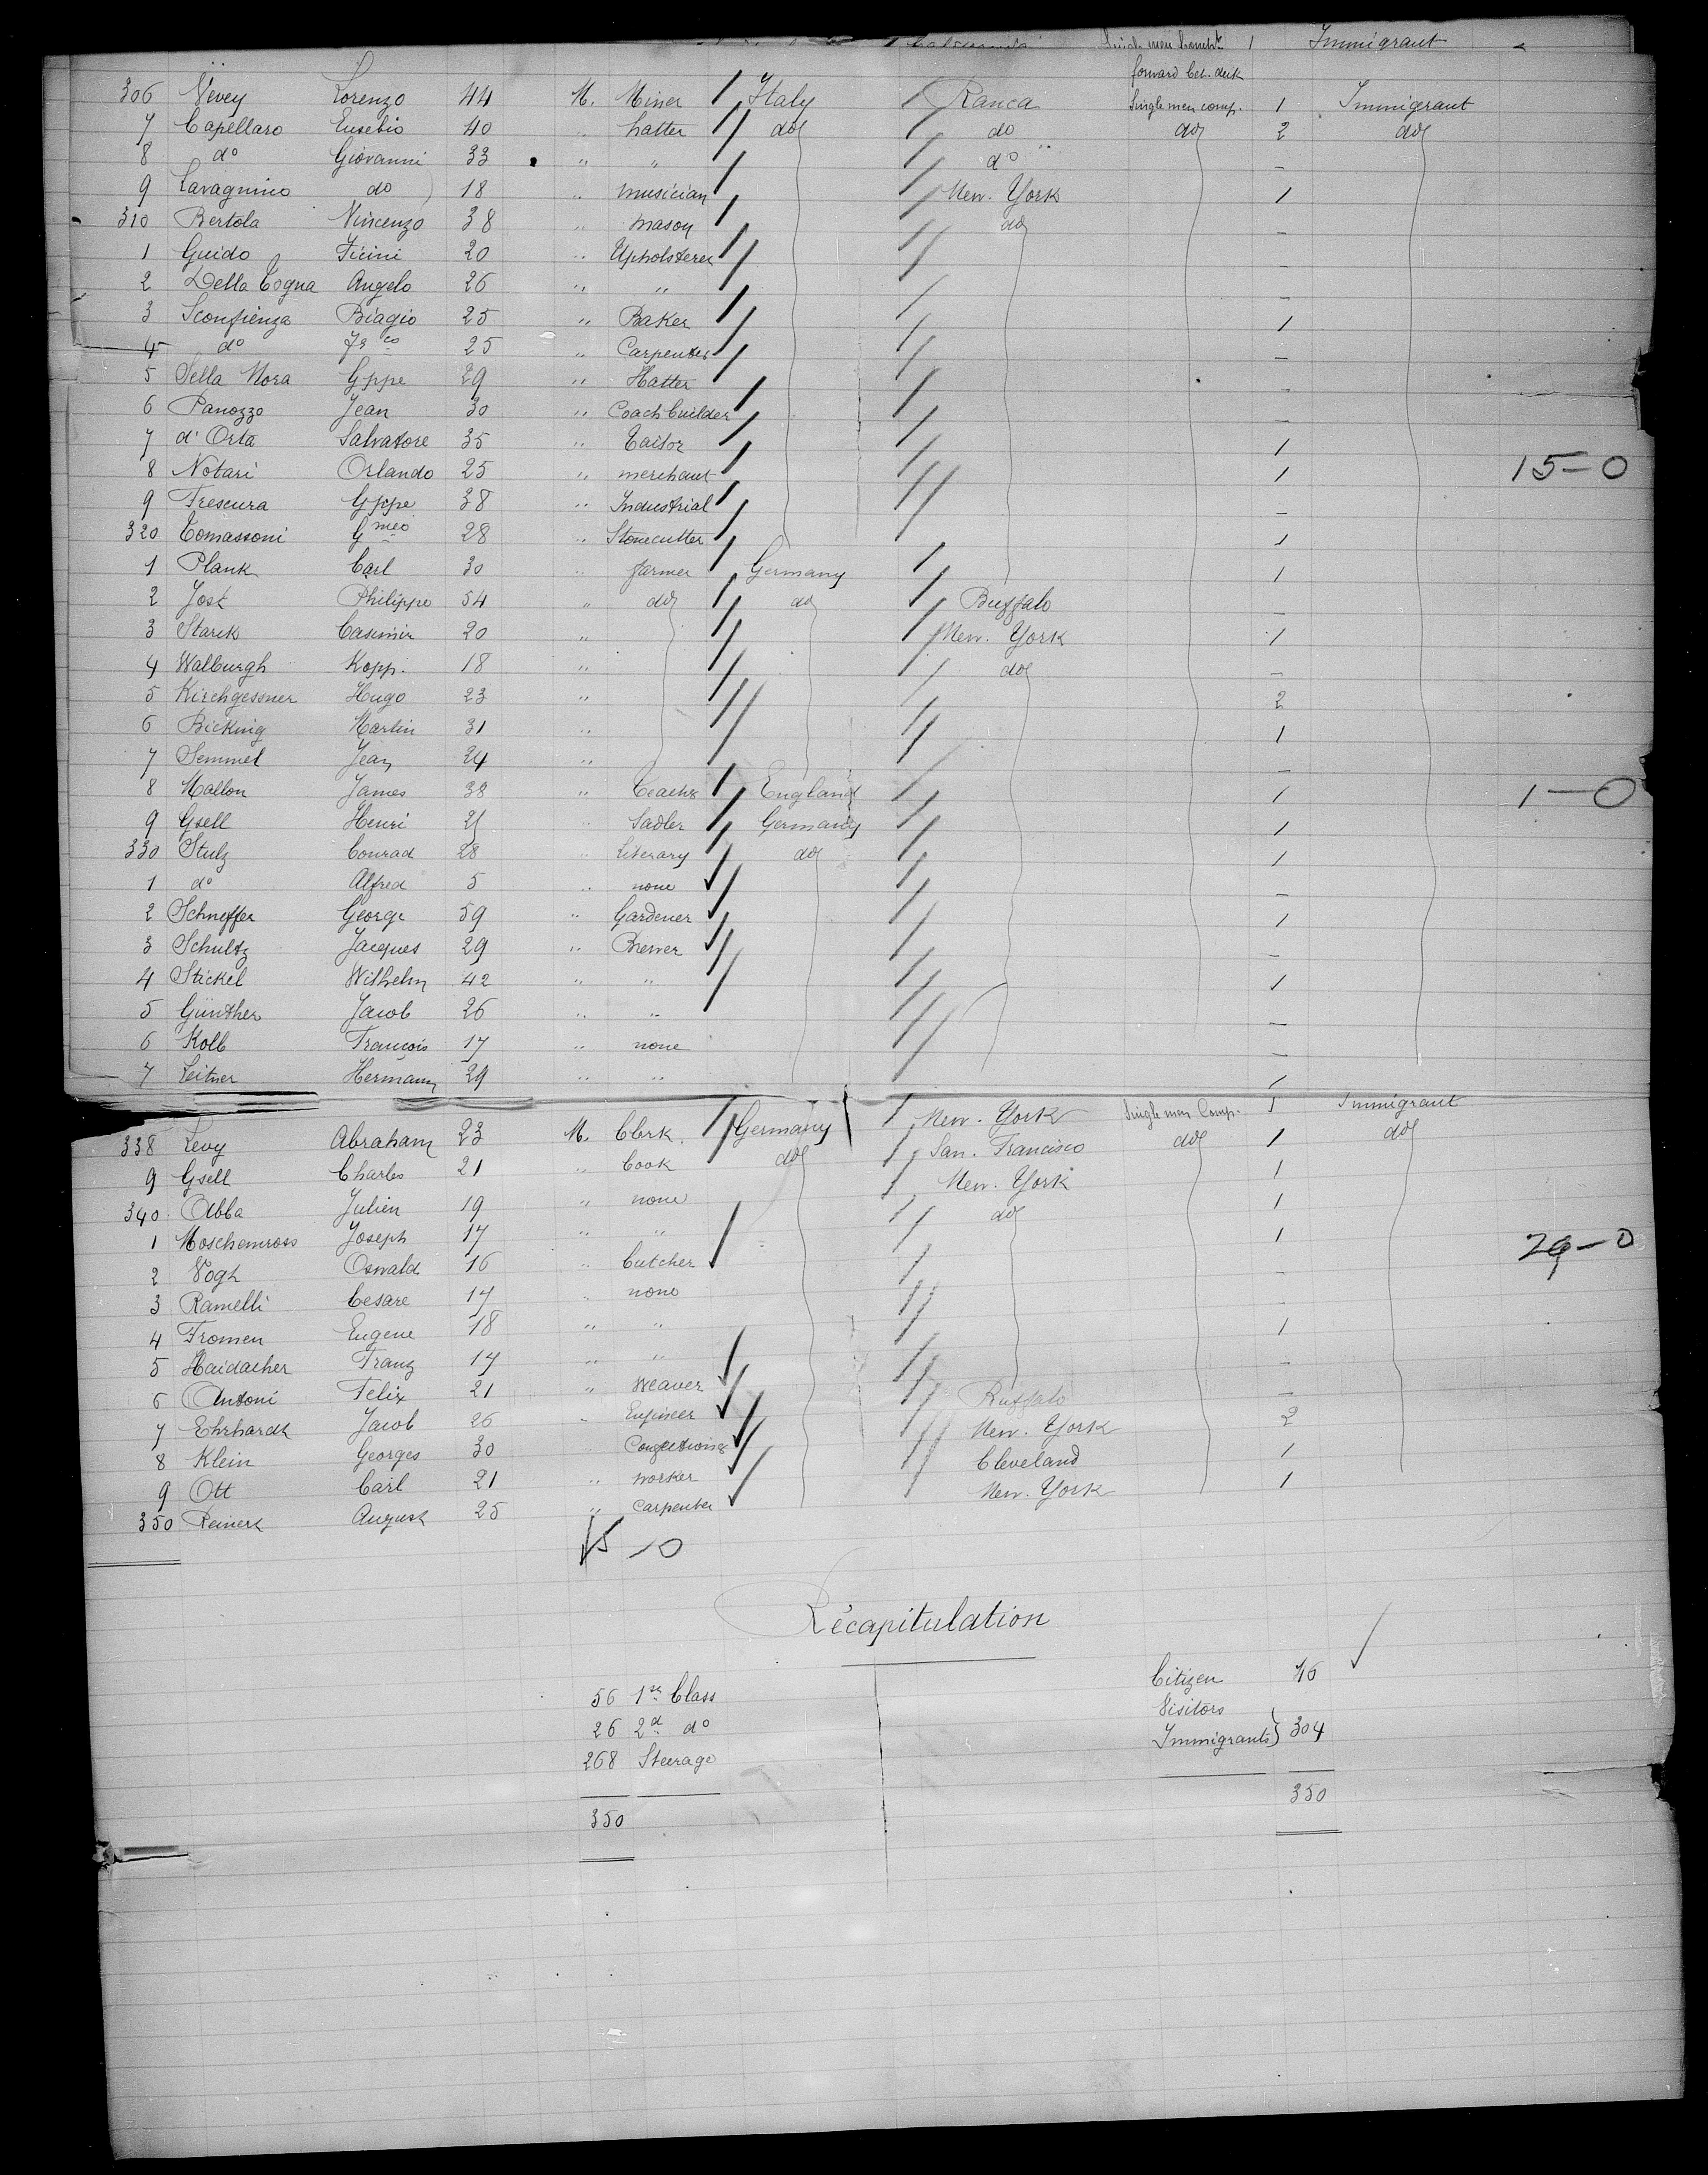 Immigrant
forward bet. deck
306 Nevey Lorenzo 44 M. Miner Italy Ranca Single men comp. 1 Immigrant
7 Capellaro Eusebio 40 " hatter do do do 2 do
8 do Giovanni 33 " " do –
9 Lavagnino do 18 " musician New. York 1
310 Bertola Vincenzo 38 " mason do –
1 Guido Ficini 20 " Upholsterer –
2 Della Cogna Angelo 26 " " –
3 Sconfienza Biagio 25 " Baker 1
4 do Fs co 25 " Carpenter –
5 Sella Mora Gppe 29 " Hatter –
6 Panozzo Jean 30 " Coach builder –
7 d'Orta Salvatore 35 " Tailor 1
8 Notari Orlando 25 " merchant 1 15–0
9 Frescura Gppe 38 " Industrial –
320 Tomassoni Gmeo 28 " Stonecutter 1
1 Plank Carl 30 " farmer Germany 1
2 Jost Philippe 54 " do do Buffalo –
3 Starck Casimir 20 " New. York 1
4 Walburgh Kopp. 18 " do –
5 Kirchgessner Hugo 23 " 2
6 Bicking Martin 31 " 1
7 Semmel Jean 24 " –
8 Mallon James 38 " England 1 1–0
9 Gsell Henri 21 " Sadler Germany 1
330 Stulz Conrad 28 " Literary do 1
1 do Alfred 5 " none –
2 Schneffer George 59 " Gardener 1
3 Schultz Jacques 29 " Brewer –
4 Stickel Wilhelm 42 " " 1
5 Günther Jacob 26 " " –
6 Kolb François 17 " none –
7 Leitner Hermann 29 " " 1
338 Levy Abraham 23 M. Clerk. Germany New. York Single men Comp. 1 Immigrant
9 Gsell Charles 21 " Cook do San. Francisco do 1 do
340 Abba Julien 19 " none New. York 1
1 Moschenross Joseph 17 " " do 1
2 Vogh Oswald 16 " butcher 1 29–0
3 Ramelli Cesare 17 " none –
4 Fromen Eugene 18 " " –
5 Haidacher Franz 17 " " 1
6 Antoni Felix 21 " Weaver –
7 Ehrhardt Jacob 26 " Engineer Buffalo –
8 Klein Georges 30 New. York 2
9 Ott Carl 21 " worker Cleveland 1
350 Reinert August 25 " Carpenter New. York 1
15–0
Récapitulation
56 1st Class
26 2d do
268 Steerage
350
Citizen 46
Visitors
Immigrants} 304
350